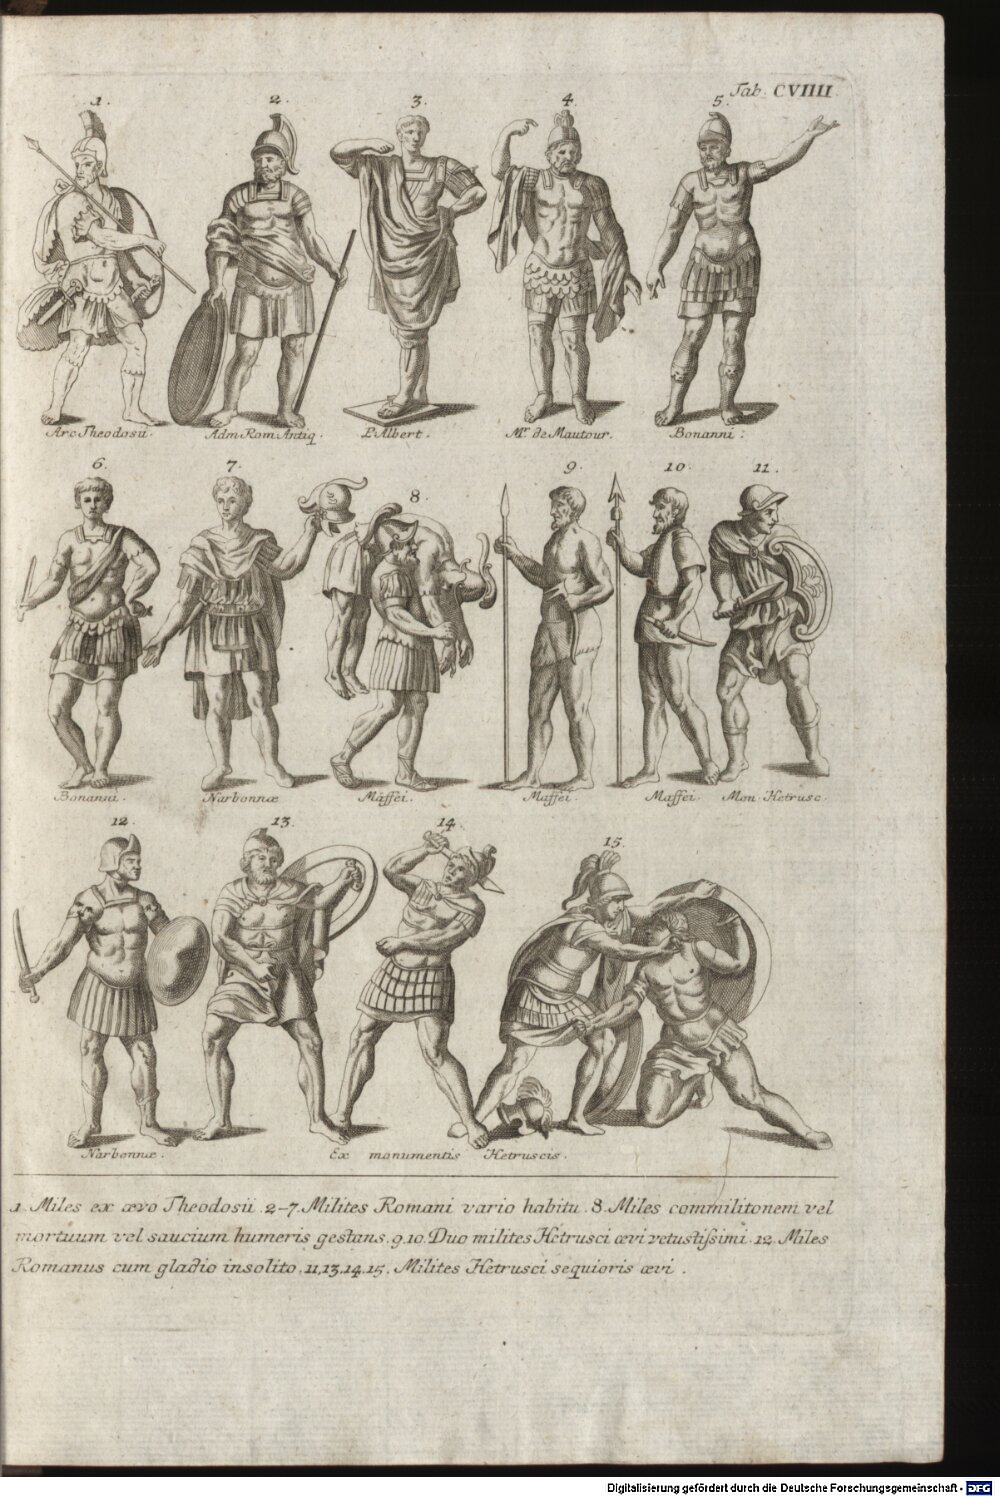 Tab. CVIIII
1. 2. 3. 4. 5.
Arc Theodosii. Adm. Rom. Antiq. P. Albert. Mr. de Mautour. Bonanni.
6. 7. 8. 9. 10. 11.
Bonanni. Narbonnæ Maffei. Maffei. Maffei. Mon. Hetrusc.
12. 13. 14. 15.
Narbonnæ. Ex monumentis Hetruscis.
1. Miles ex ævo Theodosii. 2-7. Milites Romani vario habitu. 8. Miles commilitonem vel
mortuum vel saucium humeris gestans. 9.10. Duo milites Hetrusci ævi vetustissimi. 12. Miles
Romanus cum gladio insolito. 11,13,14,15. Milites Hetrusci sequioris ævi.
Digitalisierung gefördert durch die Deutsche Forschungsgemeinschaft - DFG